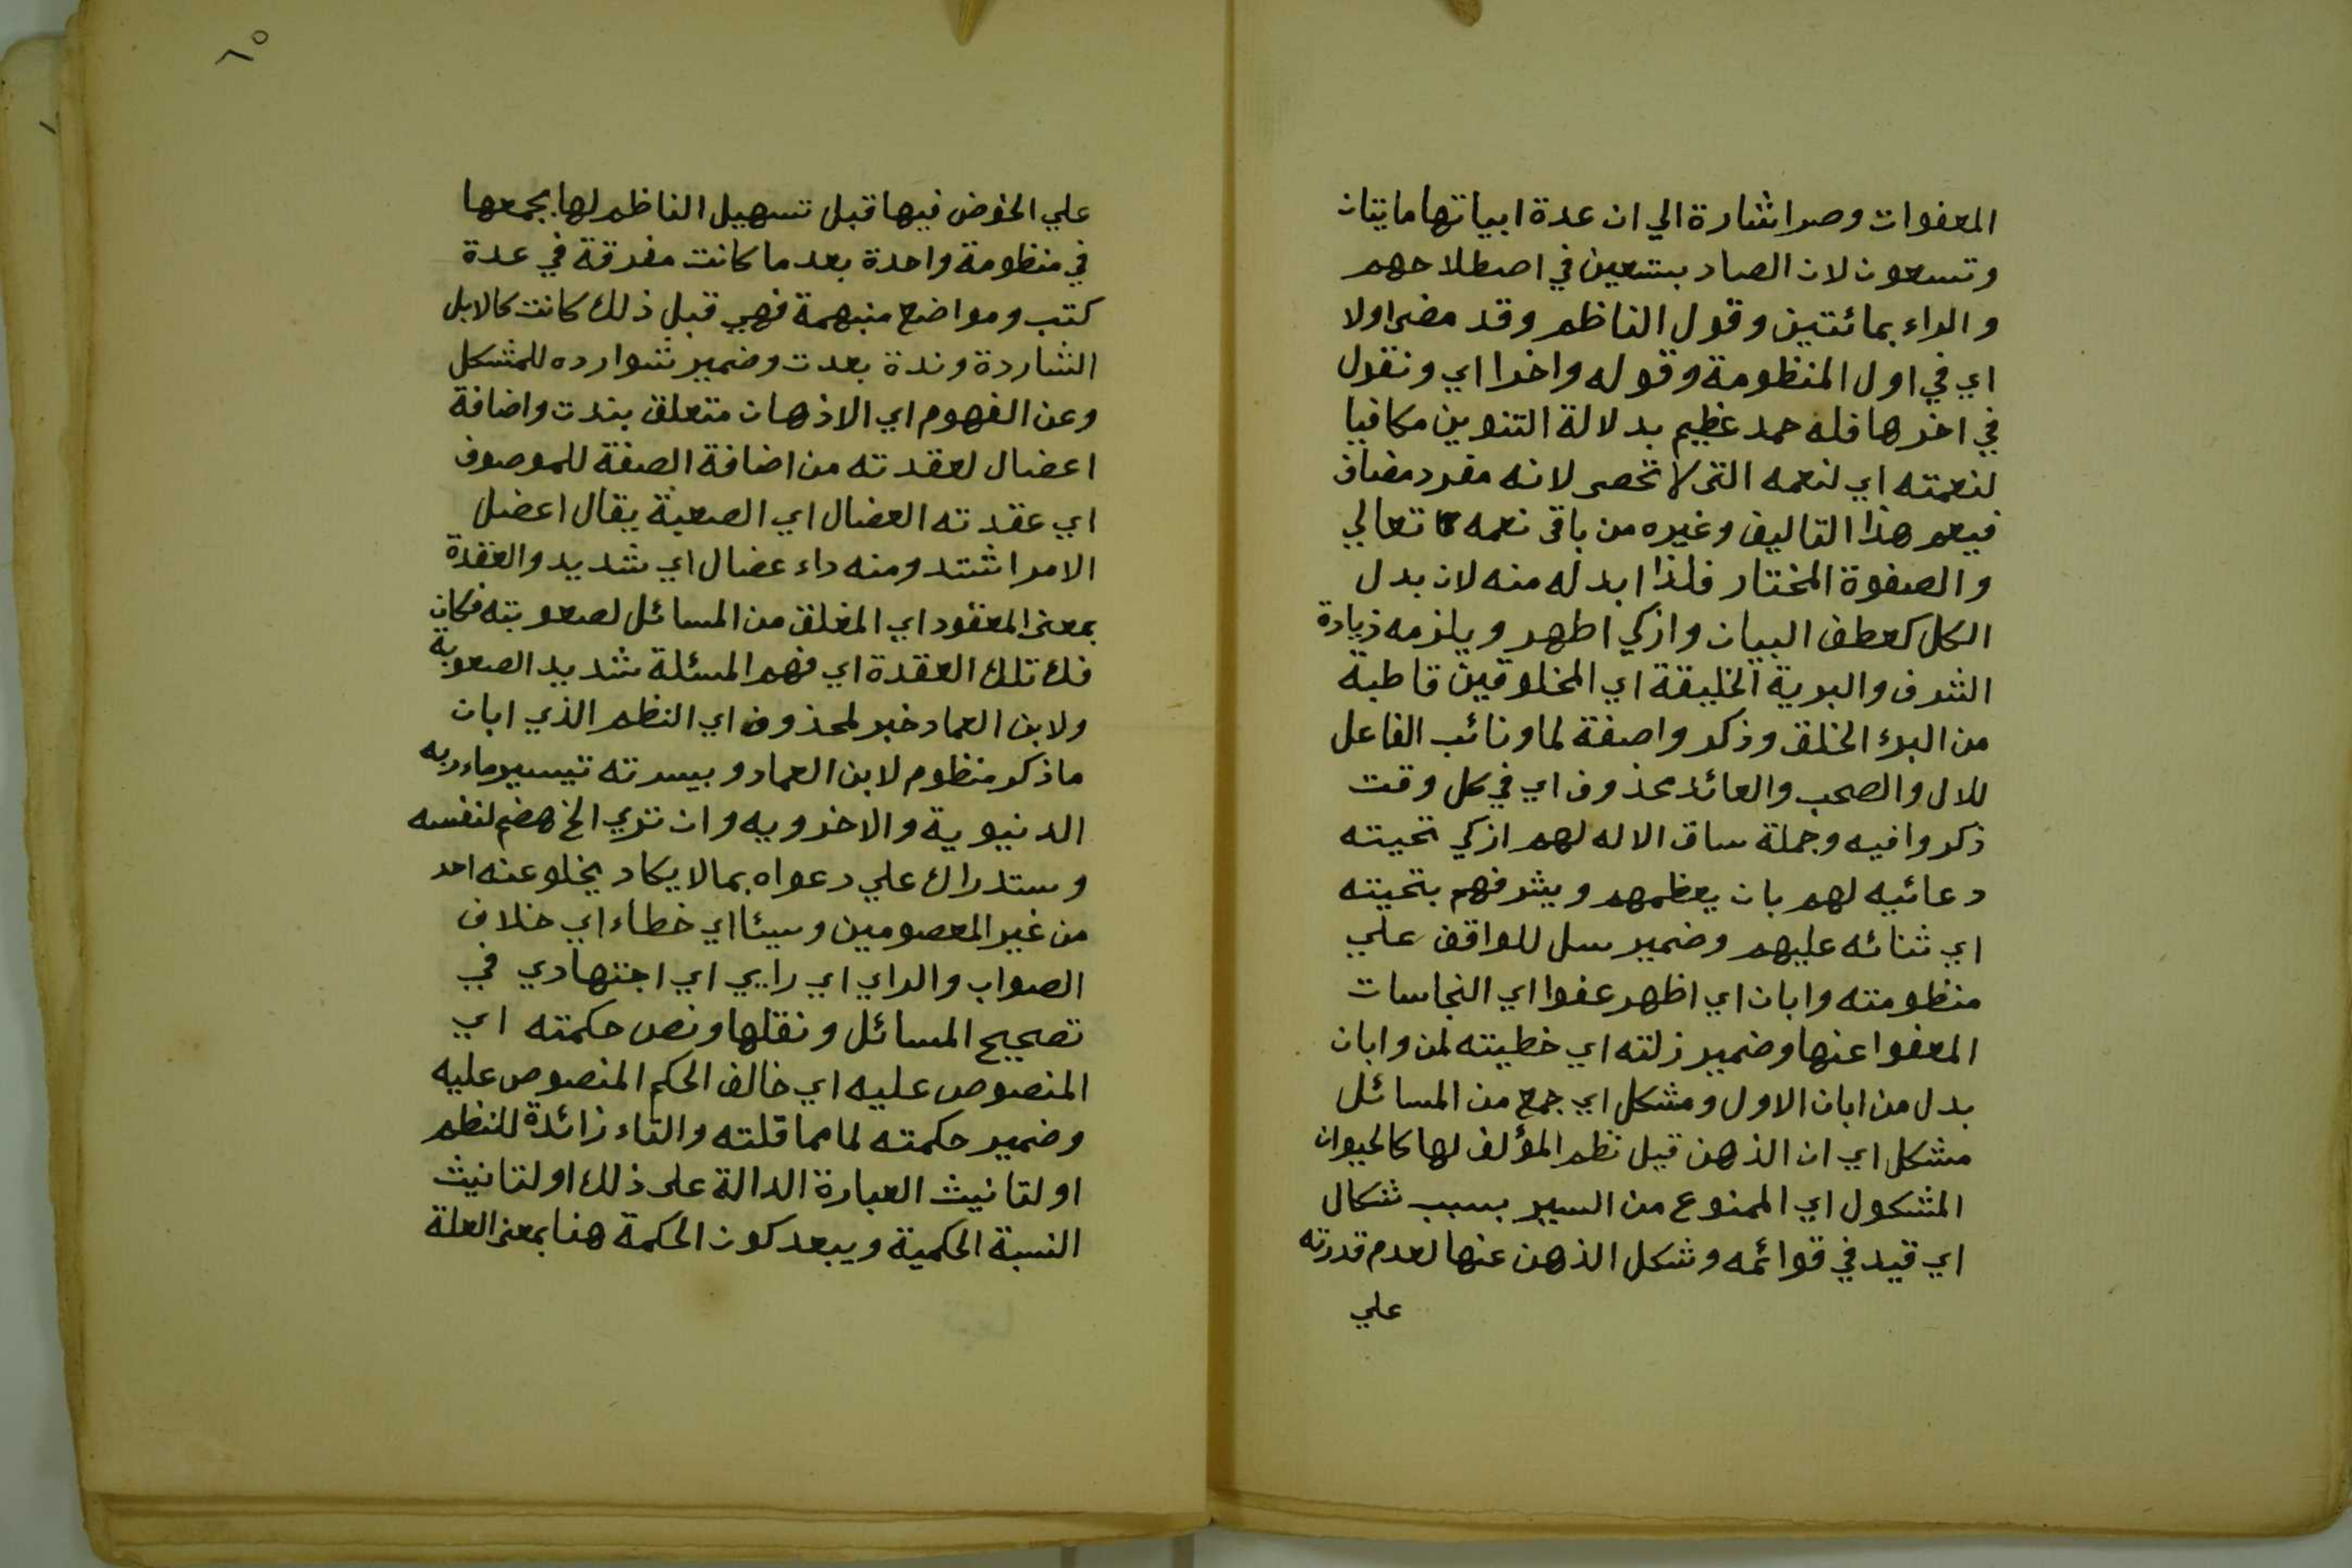 المعفوات وصر اشارة الي ان عدة ابياتها مايتان
وتسعون لان الصاد بتسعين في اصطلاحهم
والراء بمائتين وقول الناظم وقد مضي اولا
اي في اول المنظومة وقوله واخرا اي ونقول
في اخرها فله حمد عظيم بدلالة التنوين مكافيا
لنعمته اي لنعمه التي لا تحصر لانه مفرد مضاف
فيعم هذا التاليف وغيره من باقي نعمه تعالي
والصفوة المختار فلذا ابدله منه لان بدل
الكل كعطف البيان وازكي اطهر ويلزمه زيادة
الشرف والبرية الخليقة اي المخلوقين قاطبة
من البرء الخلق وذكر واصفة لما ونائب الفاعل
للال والصحب والعائد محذوف اي في كل وقت
ذكروا فيه وجملة ساق الاله لهم ازكي تحيته
دعائيه لهم بان يعظمهم ويشرفهم بتحيته
اي ثنائه عليهم وضمير سل للواقف علي
منظومته وابان اي اظهر عفوا اي النجاسات
المعفوا عنها وضمير زلته اي خطيته لمن وابان
بدل من ابان الاول ومشكل اي جمع من المسائل
مشكل اي ان الذهن قبل نظم المؤلف لها كالحيوان
المشكول اي الممنوع من السير بسبب شكال
اي قيد في قوائمه وشكل الذهن عنها لعدم قدرته
علي
٦٥
علي الخوض فيها قبل تسهيل الناظم لها بجمعها
في منظومة واحدة بعد ما كانت مفرقة في عدة
كتب ومواضع منبهمة فهي قبل ذلك كانت كالابل
الشاردة وندة بعدت وضمير شوارده للمشكل
وعن الفهوم اي الاذهان متعلق بندت واضافة
اعضال لعقدته من اضافة الصفة للموصوف
اي عقدته العضال اي الصعبة يقال اعضل
الامر اشتد ومنه داء عضال اي شديد والعقدة
بمعني المعقود اي المغلق من المسائل لصعوبته فكان
فك تلك العقدة اي فهم المسئلة شديد الصعوبة
ولابن العماد خبر لمحذوف اي النظم الذي ابان
ما ذكر منظوم لابن العماد وبيسرته تيسير ماءربه
الدنيوية والاخرويه وان تري الخ هضم لنفسه
وستدراك علي دعواه بما لا يكاد يخلو عنه احد
من غير المعصومين وسيئا اي خطاء اي خلاف
الصواب والراي اي رايي اي اجتهادي في
تصحيح المسائل ونقلها ونص حكمته اي
المنصوص عليه اي خالف الحكم المنصوص عليه
وضمير حكمته لما مما قلته والتاء زائدة للنظم
او لتانيث العبارة الدالة علي ذلك او لتانيث
النسبة الحكمية ويبعد كون الحكمة هنا بمعني العلة